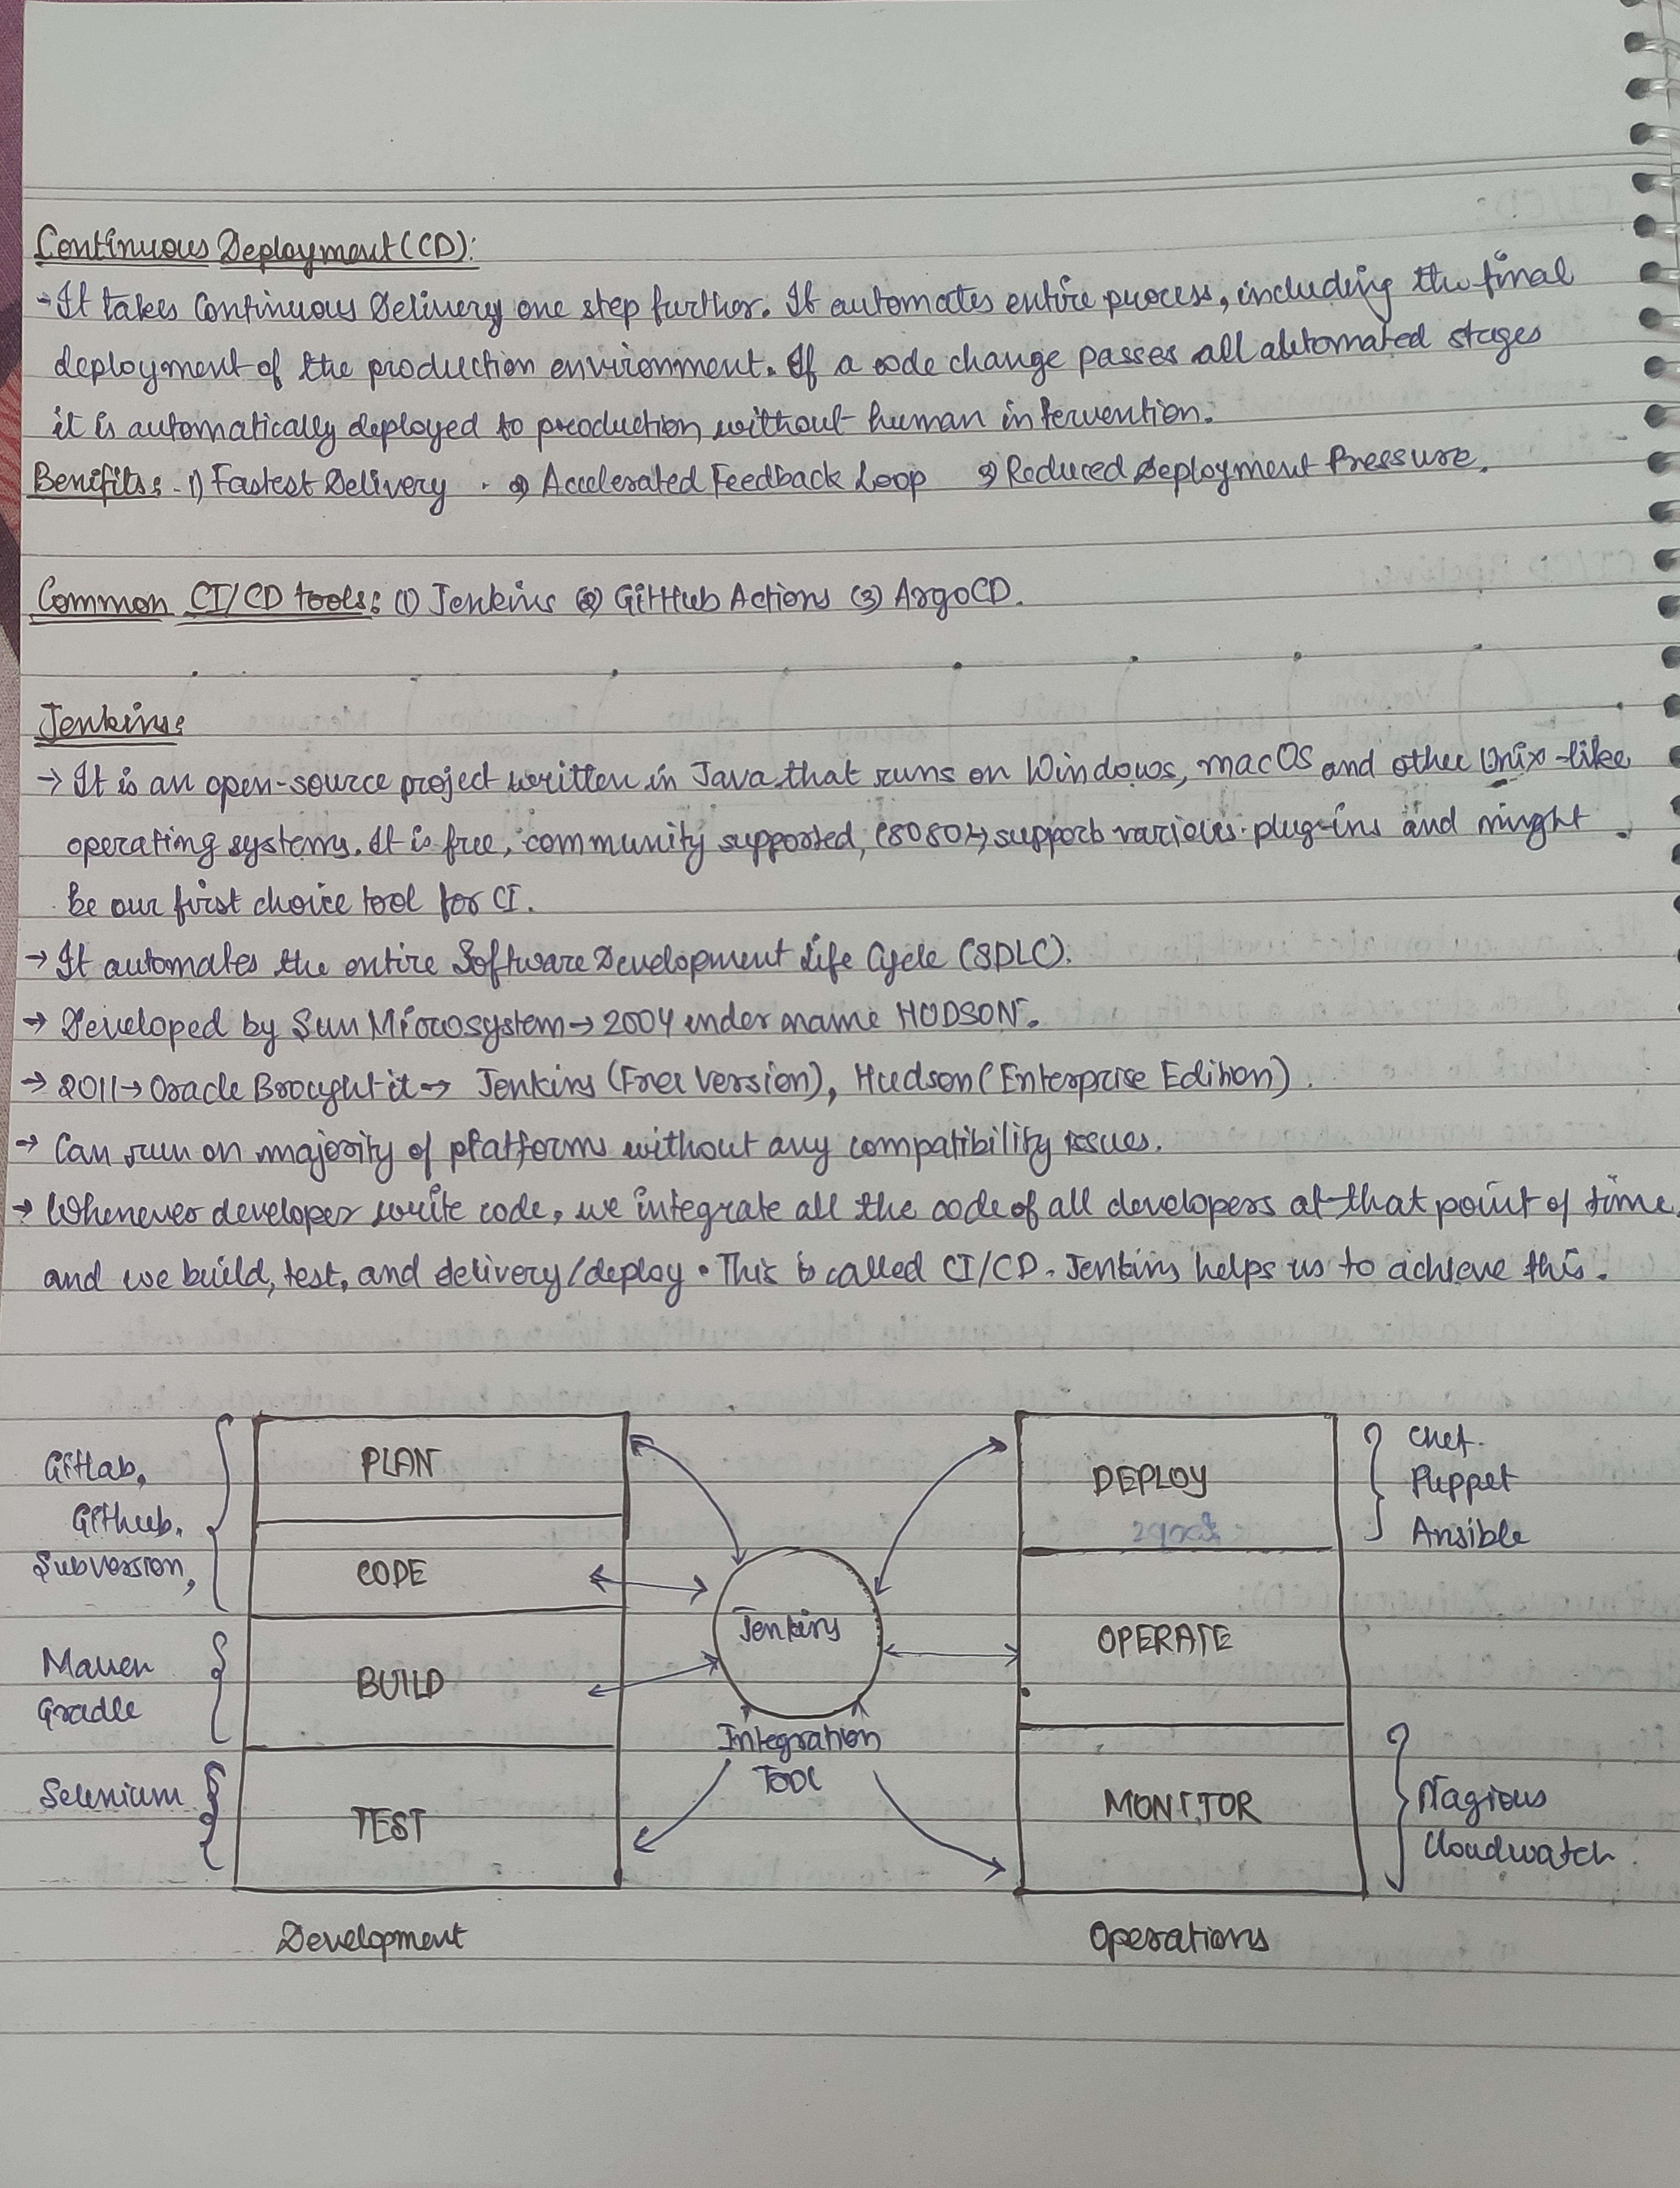 Continuous Deployment (CD):
→ It takes Continuous Delivery one step further. It automates entire process, including the final
deployment of the production environment. If a code change passes all automated stages
it is automatically deployed to production without human intervention.
Benifits: - 1) Fastest Delivery. 2) Accelerated Feedback Loop 3) Reduced Deployment Pressure.
Common CI/CD tools: (1) Jenkins (2) GitHub Actions (3) ArgoCD.
Jenkins:
→ It is an open-source project written in Java that runs on Windows, macOS and other Unix-like
operating systems. It is free, community supported, (8080) supports various plug-ins and might
be our first choice tool for CI.
→ It automates the entire Software Development Life Cycle (SDLC).
→ Developed by Sun Microsystem → 2004 under name HUDSON.
→ 2011 → Oracle Brought it → Jenkins (Free Version), Hudson (Enterprise Edition).
→ Can run on majority of platforms without any compatibility issues.
→ Whenever developer write code, we integrate all the code of all developers at that point of time.
and we build, test, and delivery/deploy. This is called CI/CD. Jenkins helps us to achieve this.
Gitlab,
Github,
Subversion,
Maven
Gradle
Selenium
PLAN
CODE
BUILD
TEST
Development
Jenkins
Integration
TOOL
DEPLOY
OPERATE
MONITOR
Operations
Chef.
Puppet
Ansible
Nagious
Cloudwatch.